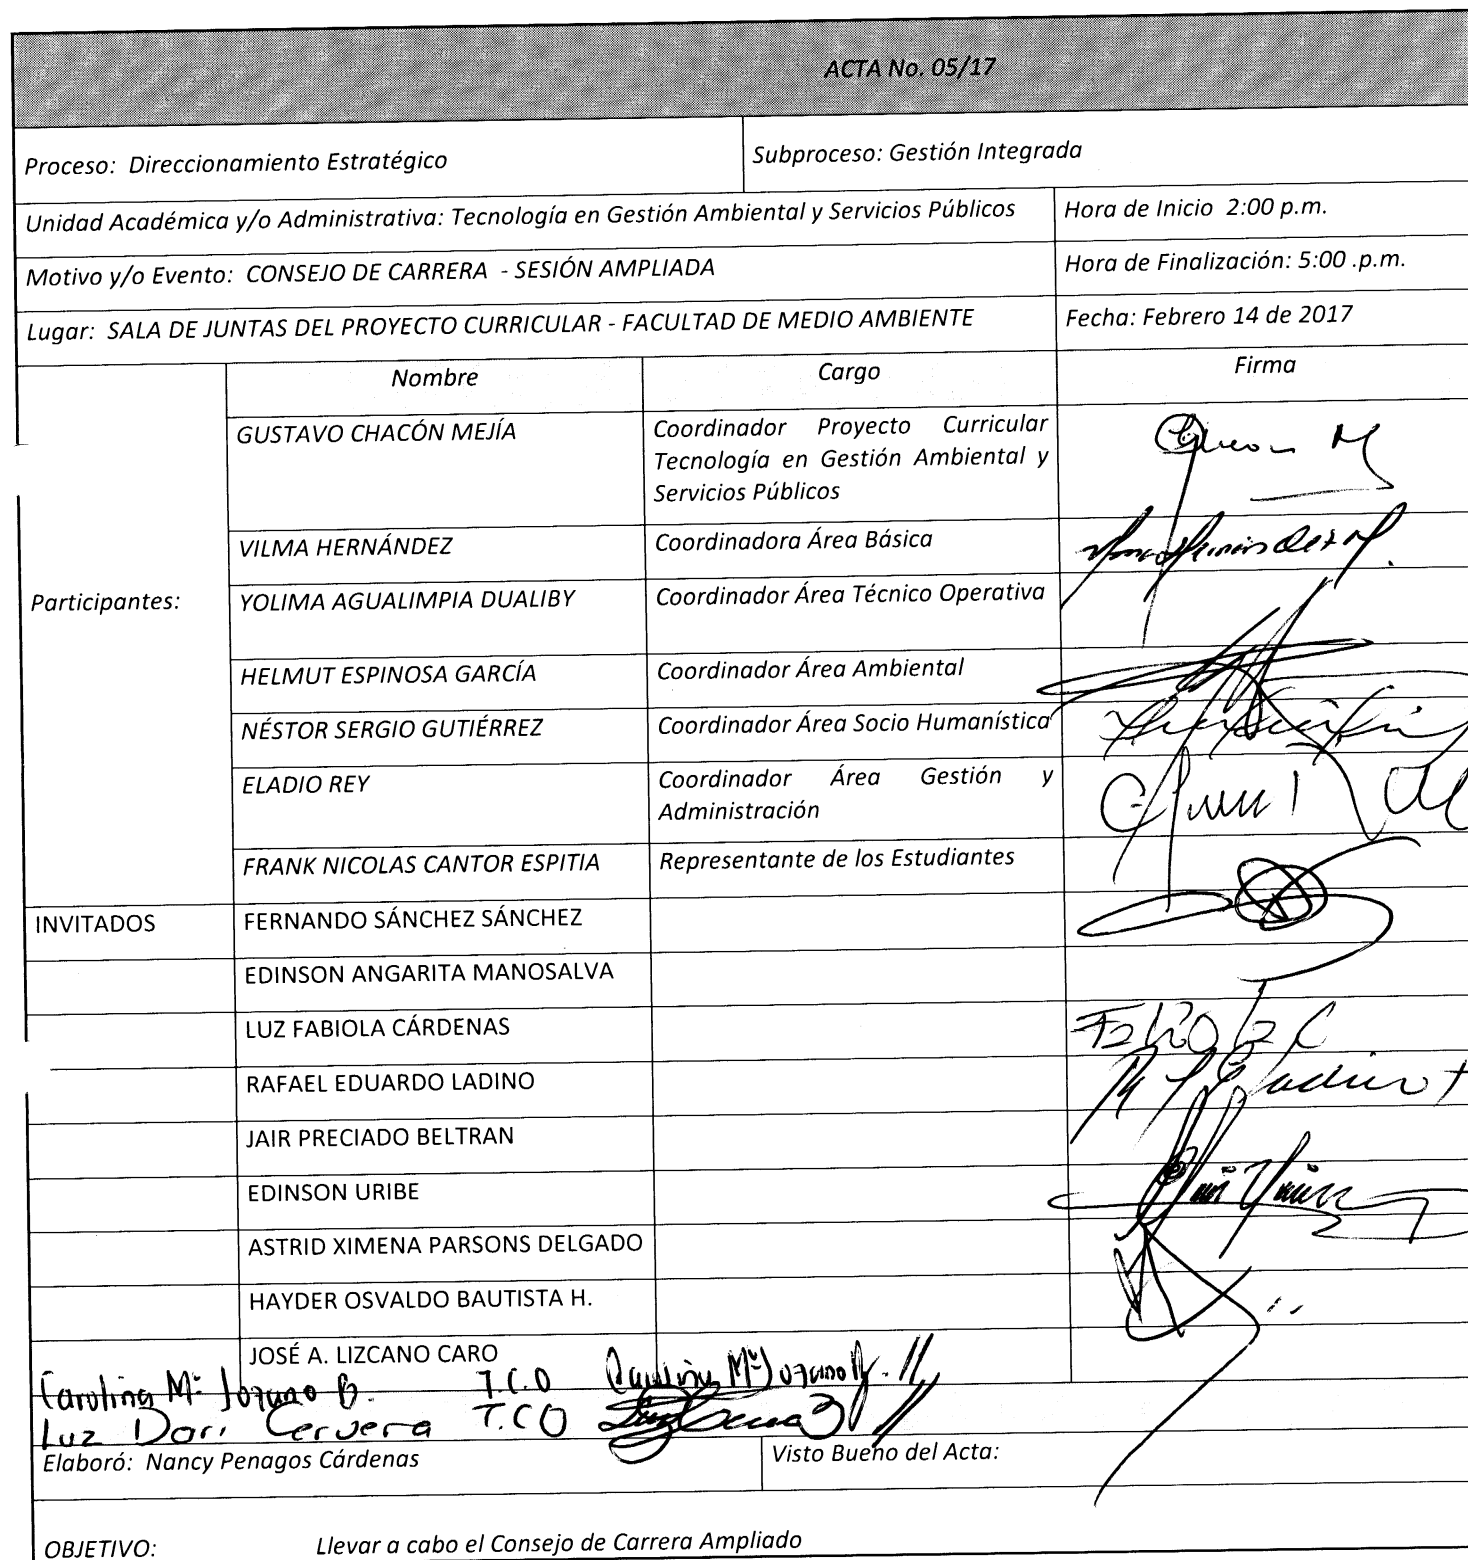 ACTA No. 05/17
Proceso: Direccionamiento Estratégico
Subproceso: Gestión Integrada
Unidad Académica y/o Administrativa: Tecnología en Gestión Ambiental y Servicios Públicos
Hora de Inicio 2:00 p.m.
Motivo y/o Evento: CONSEJO DE CARRERA - SESIÓN AMPLIADA
Hora de Finalización: 5:00 .p.m.
Lugar: SALA DE JUNTAS DEL PROYECTO CURRICULAR - FACULTAD DE MEDIO AMBIENTE
Fecha: Febrero 14 de 2017
Participantes:
Nombre
Cargo
Firma
GUSTAVO CHACÓN MEJÍA
Coordinador Proyecto Curricular
Tecnología en Gestión Ambiental y
Servicios Públicos
VILMA HERNÁNDEZ
Coordinadora Área Básica
YOLIMA AGUALIMPIA DUALIBY
Coordinador Área Técnico Operativa
HELMUT ESPINOSA GARCÍA
Coordinador Área Ambiental
NÉSTOR SERGIO GUTIÉRREZ
Coordinador Área Socio Humanística
ELADIO REY
Coordinador Área Gestión y
Administración
FRANK NICOLAS CANTOR ESPITIA
Representante de los Estudiantes
INVITADOS
FERNANDO SÁNCHEZ SÁNCHEZ
EDINSON ANGARITA MANOSALVA
LUZ FABIOLA CÁRDENAS
RAFAEL EDUARDO LADINO
JAIR PRECIADO BELTRAN
EDINSON URIBE
ASTRID XIMENA PARSONS DELGADO
HAYDER OSVALDO BAUTISTA H.
JOSÉ A. LIZCANO CARO
Carolina Mª Lozano B. T.C.O
Luz Dari Cervera T.CO
Elaboró: Nancy Penagos Cárdenas
Visto Bueno del Acta:
OBJETIVO: Llevar a cabo el Consejo de Carrera Ampliado